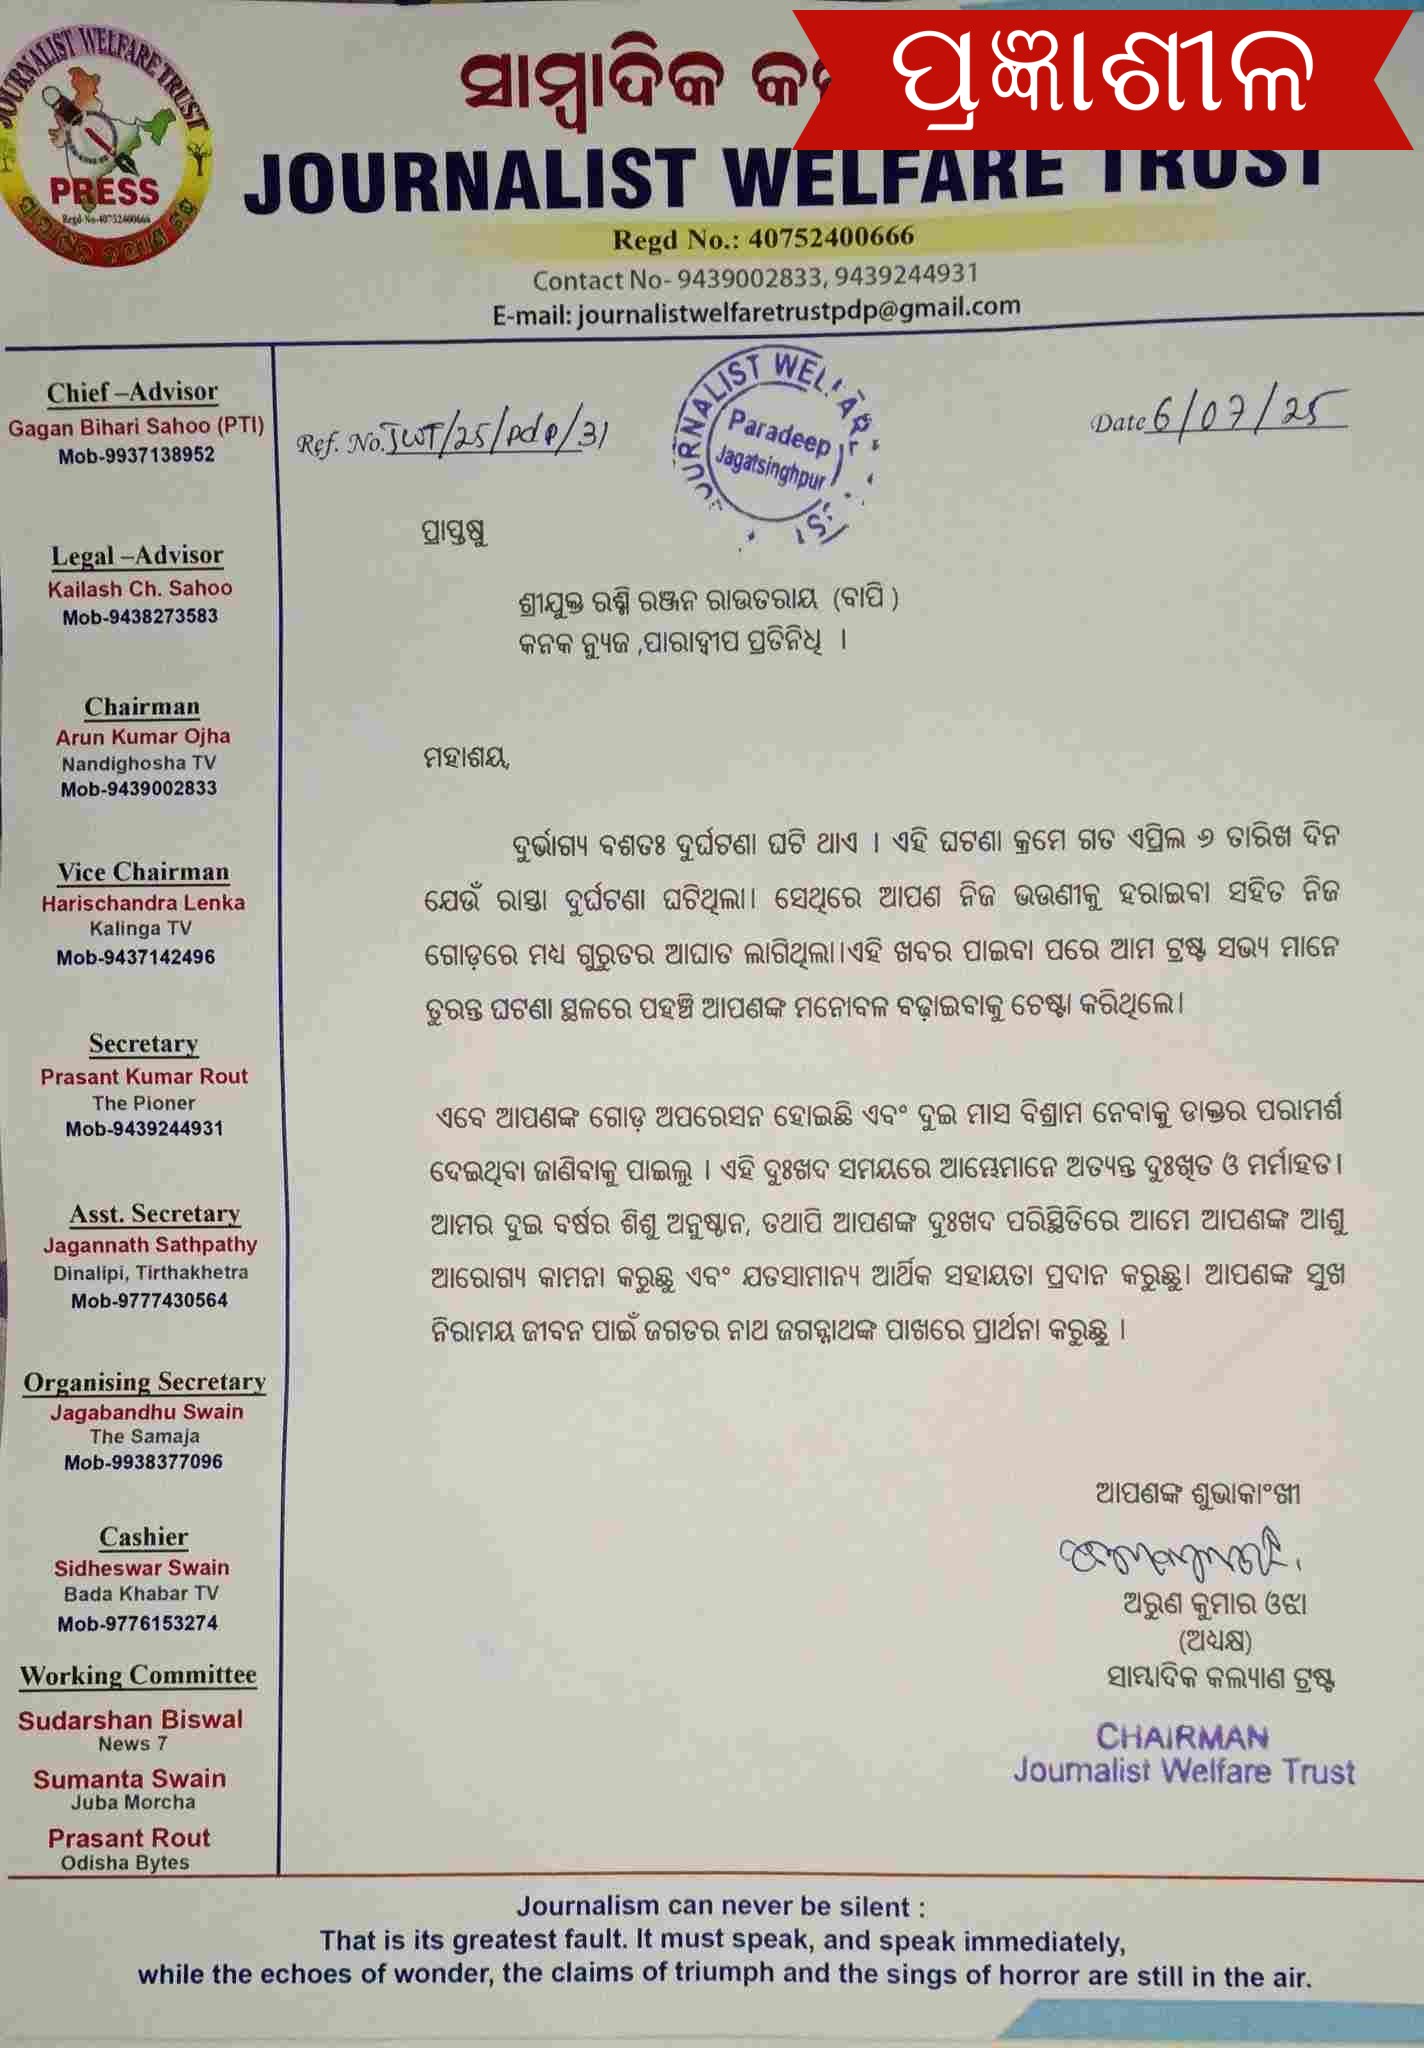 ପ୍ରଜ୍ଞାଶୀଳ
ସାମ୍ବାଦିକ
JOURNALIST WELFARE TRUST
Regd No.: 40752400666
Contact No- 9439002833, 9439244931
E-mail: journalistwelfaretrustpdp@gmail.com
JOURNALIST WELFARE TRUST
PRESS
Regd-No-40752400666
Chief –Advisor
Gagan Bihari Sahoo (PTI)
Mob-9937138952
Legal –Advisor
Kailash Ch. Sahoo
Mob-9438273583
Chairman
Arun Kumar Ojha
Nandighosha TV
Mob-9439002833
Vice Chairman
Harischandra Lenka
Kalinga TV
Mob-9437142496
Secretary
Prasant Kumar Rout
The Pioner
Mob-9439244931
Asst. Secretary
Jagannath Sathpathy
Dinalipi, Tirthakhetra
Mob-9777430564
Organising Secretary
Jagabandhu Swain
The Samaja
Mob-9938377096
Cashier
Sidheswar Swain
Bada Khabar TV
Mob-9776153274
Working Committee
Sudarshan Biswal
News 7
Sumanta Swain
Juba Morcha
Prasant Rout
Odisha Bytes
Ref. No. JWT/25/pdp/31
JOURNALIST WELFAR
Paradeep
Jagatsinghpur
Date 6/07/25
ପ୍ରାପ୍ତଷୁ
ଶ୍ରୀଯୁକ୍ତ ରଶ୍ମି ରଞ୍ଜନ ରାଉତରାୟ (ବାପି )
କନକ ନ୍ୟୁଜ ,ପାରାଦ୍ୱୀପ ପ୍ରତିନିଧି ।
ମହାଶୟ,
ଦୁର୍ଭାଗ୍ୟ ବଶତଃ ଦୁର୍ଘଟଣା ଘଟି ଥାଏ । ଏହି ଘଟଣା କ୍ରମେ ଗତ ଏପ୍ରିଲ ୬ ତାରିଖ ଦିନ
ଯେଉଁ ରାସ୍ତା ଦୁର୍ଘଟଣା ଘଟିଥିଲା। ସେଥିରେ ଆପଣ ନିଜ ଭଉଣୀକୁ ହରାଇବା ସହିତ ନିଜ
ଗୋଡ଼ରେ ମଧ୍ୟ ଗୁରୁତର ଆଘାତ ଲାଗିଥିଲା।ଏହି ଖବର ପାଇବା ପରେ ଆମ ଟ୍ରଷ୍ଟ ସଭ୍ୟ ମାନେ
ତୁରନ୍ତ ଘଟଣା ସ୍ଥଳରେ ପହଞ୍ଚି ଆପଣଙ୍କ ମନୋବଳ ବଢ଼ାଇବାକୁ ଚେଷ୍ଟା କରିଥିଲେ।
ଏବେ ଆପଣଙ୍କ ଗୋଡ଼ ଅପରେସନ ହୋଇଛି ଏବଂ ଦୁଇ ମାସ ବିଶ୍ରାମ ନେବାକୁ ଡାକ୍ତର ପରାମର୍ଶ
ଦେଇଥିବା ଜାଣିବାକୁ ପାଇଲୁ । ଏହି ଦୁଃଖଦ ସମୟରେ ଆମ୍ଭେମାନେ ଅତ୍ୟନ୍ତ ଦୁଃଖିତ ଓ ମର୍ମାହତ।
ଆମର ଦୁଇ ବର୍ଷର ଶିଶୁ ଅନୁଷ୍ଠାନ, ତଥାପି ଆପଣଙ୍କ ଦୁଃଖଦ ପରିସ୍ଥିତିରେ ଆମେ ଆପଣଙ୍କ ଆଶୁ
ଆରୋଗ୍ୟ କାମନା କରୁଛୁ ଏବଂ ଯତସାମାନ୍ୟ ଆର୍ଥିକ ସହାୟତା ପ୍ରଦାନ କରୁଛୁ। ଆପଣଙ୍କ ସୁଖ
ନିରାମୟ ଜୀବନ ପାଇଁ ଜଗତର ନାଥ ଜଗନ୍ନାଥଙ୍କ ପାଖରେ ପ୍ରାର୍ଥନା କରୁଛୁ ।
ଆପଣଙ୍କ ଶୁଭାକାଂଖୀ
ଅରୁଣ କୁମାର ଓଝା
(ଅଧକ୍ଷ)
ସାମ୍ଭାଦିକ କଲ୍ୟାଣ ଟ୍ରଷ୍ଟ
CHAIRMAN
Journalist Welfare Trust
Journalism can never be silent :
That is its greatest fault. It must speak, and speak immediately,
while the echoes of wonder, the claims of triumph and the sings of horror are still in the air.